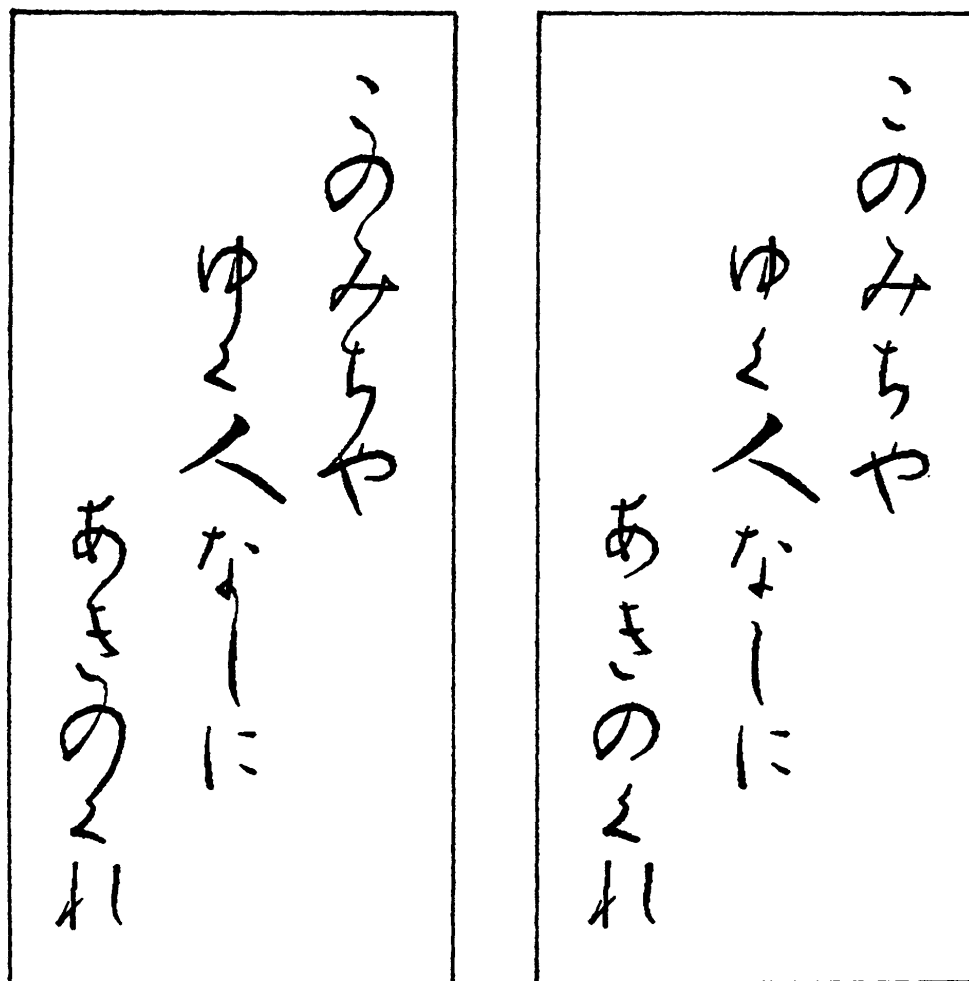 このみちや
ゆく人なしに
あきのくれ
このみちや
ゆく人なしに
あきのくれ